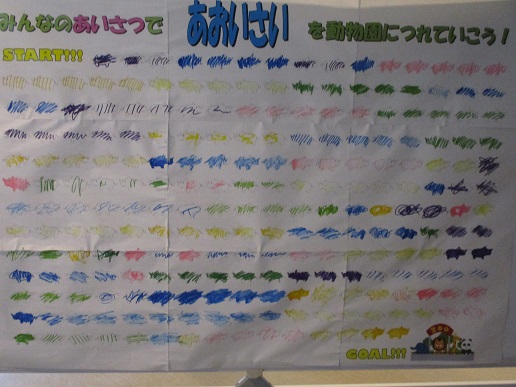 みんなのあいさつで あおいさい を動物園につれていこう！
START!!!
GOAL!!!